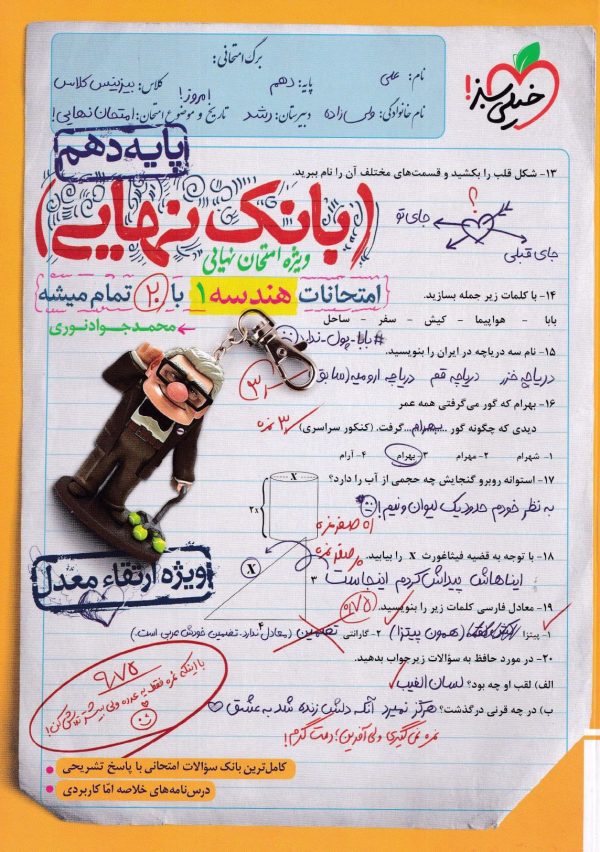 برگ امتحانی:
نام: علی
پایه: دهم
کلاس: بیزینس کلاس
نام خانوادگی: ولی‌زاده
دبیرستان: رشد
تاریخ و موضوع امتحان: امتحان نهایی!
امروز!
خیلی سبز!
پایه دهم
(بانک نهایی)
ویژه امتحان نهایی
امتحانات هندسه ۱ با ۲۰ تمام میشه
محمدجواد نوری
۱۳- شکل قلب را بکشید و قسمت‌های مختلف آن را نام ببرید.
؟
جای تو
جای قبلی
۱۴- با کلمات زیر جمله بسازید.
بابا - هواپیما - کیش - سفر - ساحل
#بابا-پول-نداره
۱۵- نام سه دریاچه در ایران را بنویسید.
دریاچه خزر دریاچه قم دریاچه ارومیه (سابق)
۳
۱۶- بهرام که گور می‌گرفتی همه عمر
دیدی که چگونه گور ...بهرام... گرفت. (کنکور سراسری)
۳ نمره
۱- شهرام ۲- مهرام ۳- بهرام ۴- آرام
۱۷- استوانه روبرو گنجایش چه حجمی از آب را دارد؟
به نظر خودم حدود یک لیوان و نیم!
x
۲x
اه صفر نمره
۱۸- با توجه به قضیه فیثاغورث x را بیابید.
صفر نمره
ایناهاش پیداش کردم اینجاست
x
۳
۴
۱۹- معادل فارسی کلمات زیر را بنویسید.
۰/۷۵
۱- پیتزا (همون پیتزا) ۲- گارانتی تضمین (معادل ندارد. تضمین خودش عربی است.)
۲۰- در مورد حافظ به سؤالات زیر جواب بدهید.
الف) لقب او چه بود؟ لسان الغیب
ب) در چه قرنی درگذشت؟ هرگز نمیرد آنکه دلش زنده شد به عشق
نمره نمی‌گیری ولی آفرین! دمت گرم!
ویژه ارتقاء معدل
۹/۷۵
با اینکه نمره فقط یه عدده ولی بیشتر تلاش کن!
کامل‌ترین بانک سؤالات امتحانی با پاسخ تشریحی
درس‌نامه‌های خلاصه امّا کاربردی